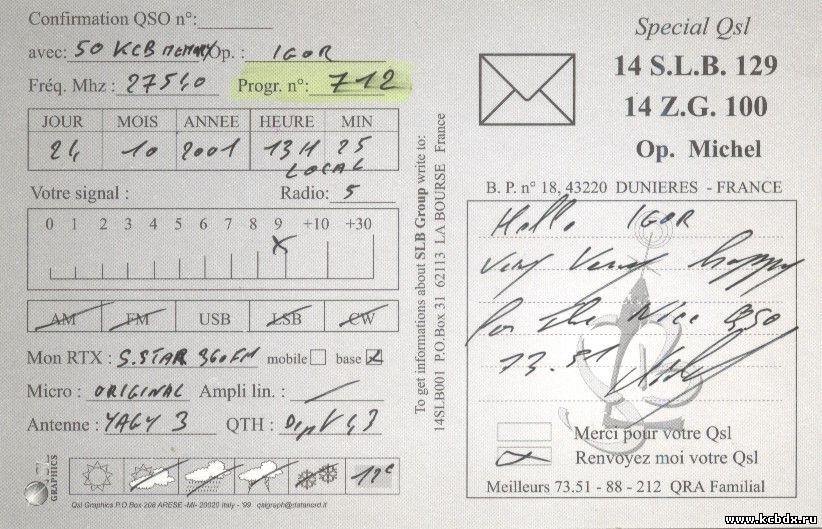 Confirmation QSO n°:
avec: 50 KCB MEMORY Op.: IGOR
Fréq. Mhz : 27540 Progr. n°: 712
JOUR MOIS ANNEE HEURE MIN
24 10 2001 13H 25
LOCAL
Votre signal : Radio: 5
0 1 2 3 4 5 6 7 8 9 +10 +30
AM FM USB LSB CW
Mon RTX : S.STAR 360FM mobile base
Micro : ORIGINAL Ampli lin. :
Antenne : YAGY 3 QTH : Dept 43
GRAPHICS
Qsl Graphics P.O.Box 208 ARESE -MI- 20020 Italy - '99 qslgraph@datanord.it
To get informations about SLB Group write to:
14SLB001 P.O.Box 31 62113 LA BOURSE France
Special Qsl
14 S.L.B. 129
14 Z.G. 100
Op. Michel
B. P. n° 18, 43220 DUNIERES - FRANCE
Hello IGOR
very very happy
for the Nice QSO
73.51
Merci pour votre Qsl
Renvoyez moi votre Qsl
Meilleurs 73.51 - 88 - 212 QRA Familial
www.kcbdx.ru